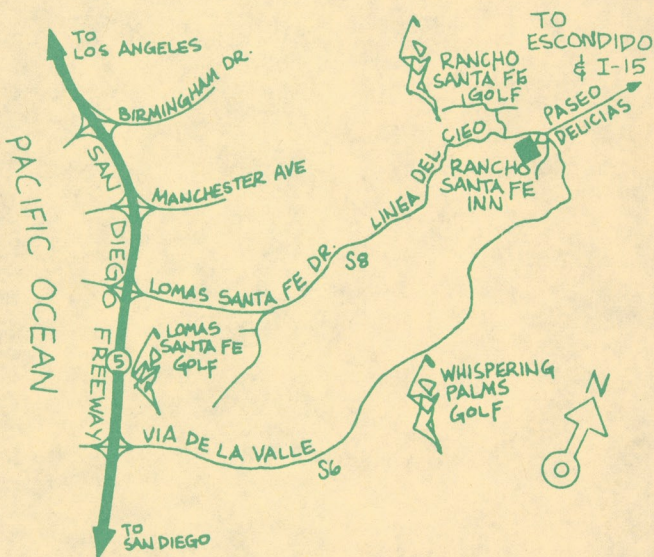 TO
LOS ANGELES
BIRMINGHAM DR.
SAN DIEGO FREEWAY
PACIFIC OCEAN
MANCHESTER AVE
LOMAS SANTA FE DR.
S8
LINEA DEL CIEO
RANCHO
SANTA FE
GOLF
TO
ESCONDIDO
& I-15
PASEO
DELICIAS
RANCHO
SANTA FE
INN
LOMAS
SANTA FE
GOLF
5
WHISPERING
PALMS
GOLF
VIA DE LA VALLE
S6
N
TO
SAN DIEGO